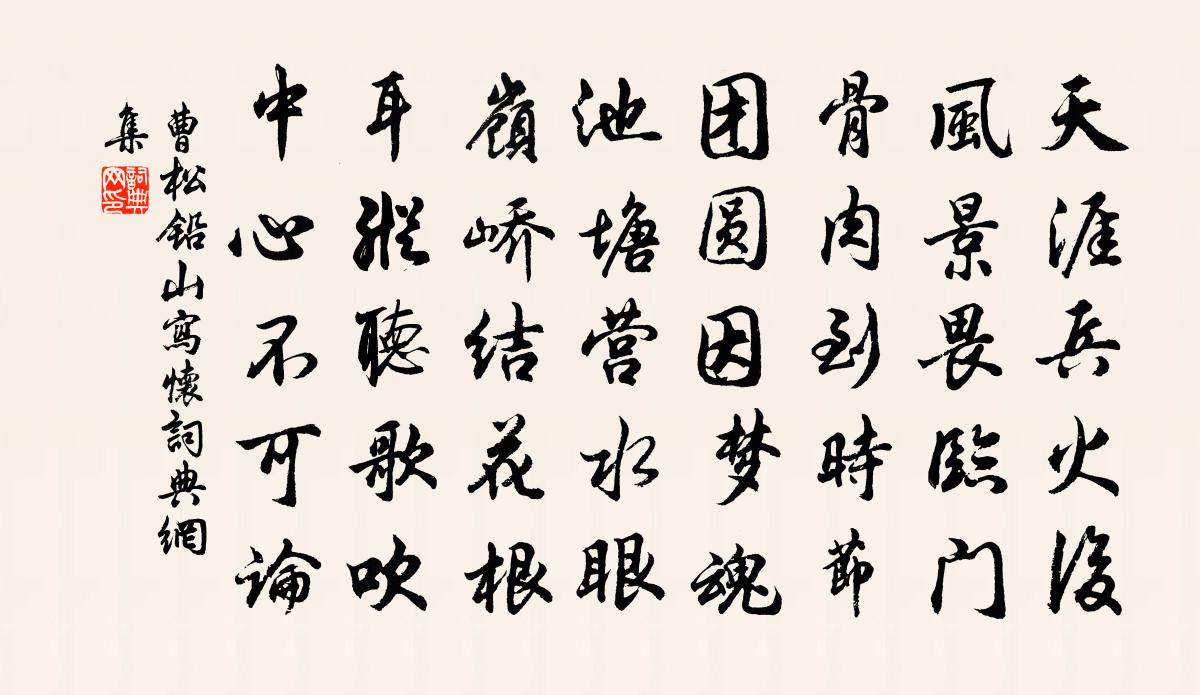 天涯兵火後
風景畏臨门
骨肉到時節
团圆因梦魂
池塘营水眼
嶺峤结花根
耳縱聴歌吹
中心不可論
曹松鉛山寫懷詞典網
集
詞典
网印